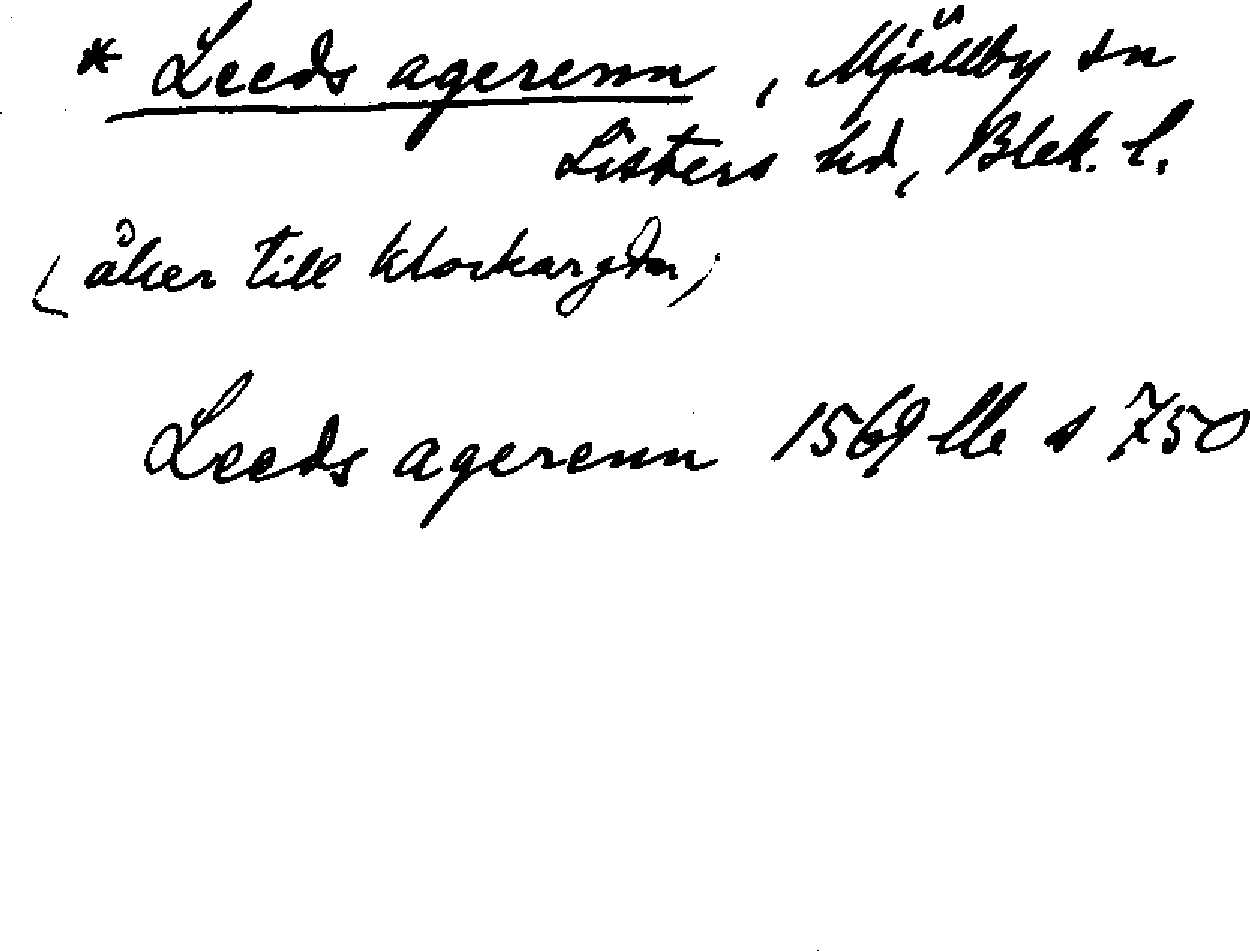 * Leeds agerenn, Mjällby sn
Listers hd, Blek. l.
(åker till klockargdn)
Leeds agerenn 1569 lle s 750